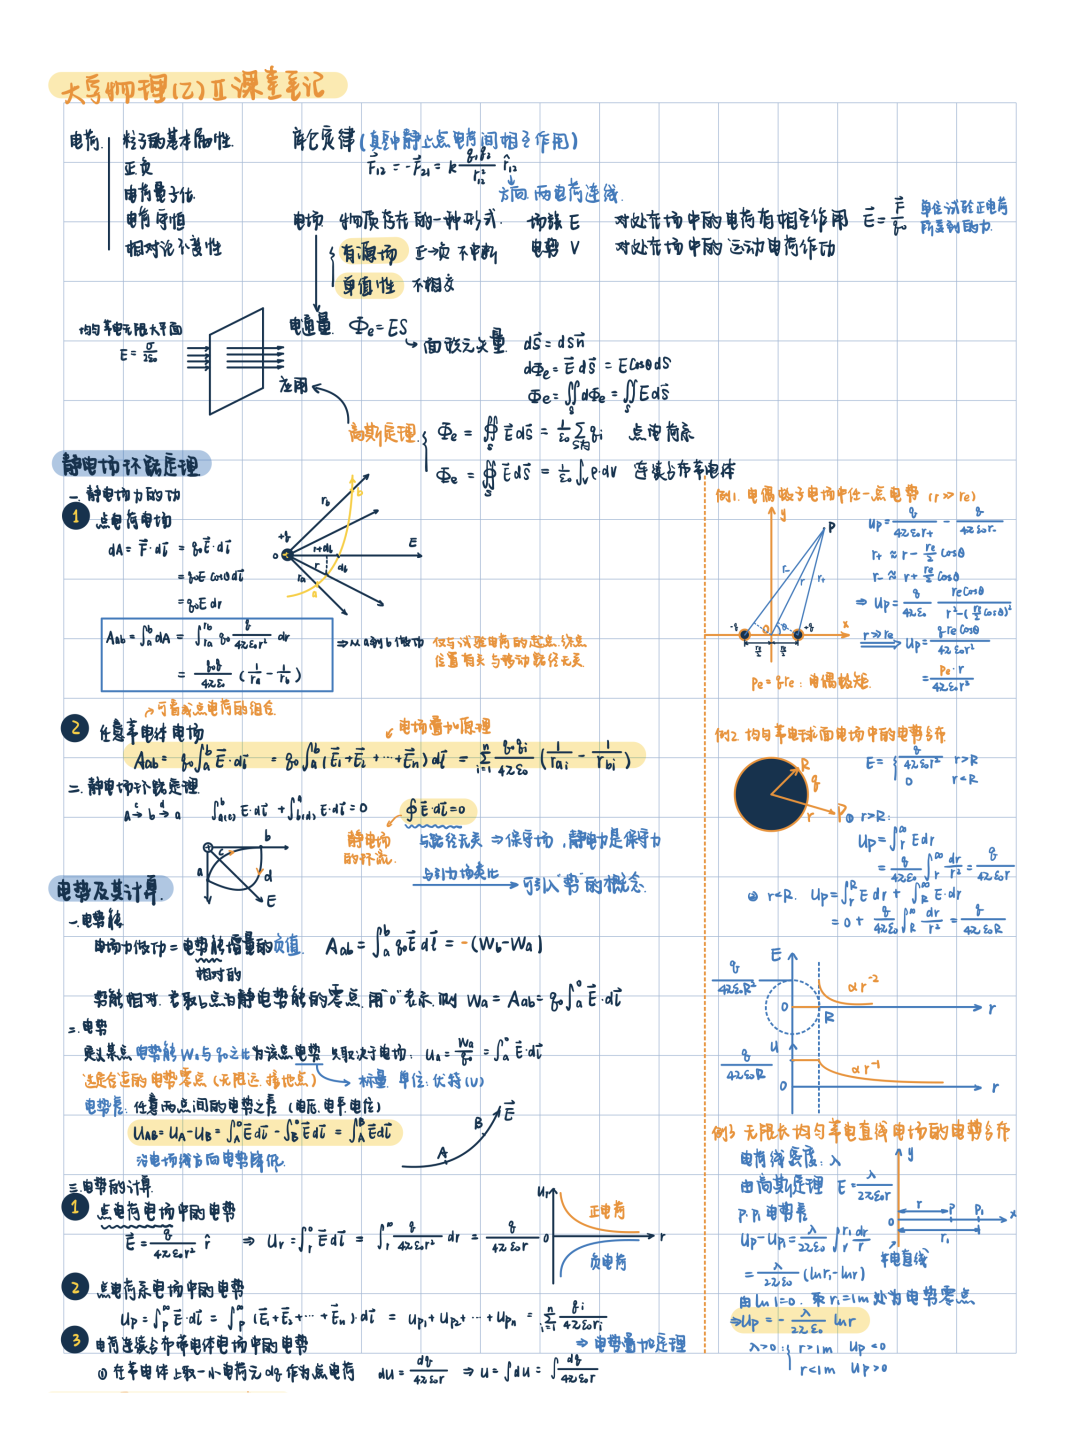 大学物理(乙)Ⅱ 课堂笔记
电荷
粒子的基本属性.
正负
电荷量子化
电荷守恒
相对论不变性
库仑定律 (真空中静止点电荷间相互作用)
F⃗₁₂ = -F⃗₂₁ = k q₁q₂/r₁₂² r̂₁₂
方向:两电荷连线.
电场 物质存在的一种形式.
有源场 正→负 不中断
单值性 不相交
场强 E 对处在场中的电荷有相互作用 E⃗ = F⃗/q₀ 单位试验正电荷所受到的力.
电势 V 对处在场中的运动电荷作功
均匀带电无限大平面
E = σ/2ε₀
应用
电通量 Φe = ES
面积元矢量. dS⃗ = dS n⃗
dΦe = E⃗ dS⃗ = E cosθ dS
Φe = ∬_S dΦe = ∬_S E dS⃗
高斯定理. Φe = ∯_S E⃗ dS⃗ = 1/ε₀ Σ_{S内} qi 点电荷系
Φe = ∯_S E⃗ dS⃗ = 1/ε₀ ∫_V ρ·dV 连续分布带电体
静电场环路定理
一. 静电场力的功
1 点电荷电场
dA = F⃗·dl⃗ = q₀E⃗·dl⃗
= q₀E cosθ dl⃗
= q₀E dr
+q o r_b b E r+dr r dl r_a a
A_ab = ∫_a^b dA = ∫_{ra}^{rb} q₀ q/4πε₀r² dr
= q₀q/4πε₀ (1/ra - 1/rb)
⇒从a到b做功 仅与试验电荷的起点.终点
位置有关 与移动路径无关
可看成点电荷的组合.
2 任意带电体电场
电场叠加原理
A_ab = q₀∫_a^b E⃗·dl⃗ = q₀∫_a^b (E⃗₁+E⃗₂+···+E⃗n) dl⃗ = Σ_{i=1}^n q₀qi/4πε₀ (1/rai - 1/rbi)
二. 静电场环路定理.
a →c b →d a ∫_{a(c)}^b E·dl⃗ + ∫_{b(d)}^a E·dl⃗ = 0 ∮E⃗·dl⃗=0
静电场
的环流.
与路径无关 ⇒ 保守场 , 静电力是保守力
与引力场类比 → 可引入"势"的概念.
b c a d E
电势及其计算.
一. 电势能
电场力做功 = 电势能增量的负值. A_ab = ∫_a^b q₀E⃗ dl⃗ = -(Wb-Wa)
相对的
势能相对. 若取b点为静电势能的零点. 用"0"表示. 则 Wa = A_ab = q₀∫_a^0 E⃗·dl⃗
二. 电势
定义某点 电势能Wa与q₀之比为该点电势 只取决于电场: Ua = Wa/q₀ = ∫_a^0 E⃗·dl⃗
选定合适的电势零点 (无限远.接地点) → 标量. 单位:伏特(V)
电势差: 任意两点间的电势之差 (电压.电平.电位)
U_AB = U_A - U_B = ∫_A^0 E⃗dl⃗ - ∫_B^0 E⃗dl⃗ = ∫_A^B E⃗dl⃗
沿电场线方向电势降低.
A B E⃗
三. 电势的计算.
1 点电荷电场中的电势
E⃗ = q/4πε₀r² r̂ ⇒ Ur = ∫_r^0 E⃗dl⃗ = ∫_r^∞ q/4πε₀r² dr = q/4πε₀r
Ur 正电荷 0 r 负电荷
2 点电荷系电场中的电势
Up = ∫_p^∞ E⃗·dl⃗ = ∫_p^∞ (E⃗₁+E⃗₂+···+E⃗n)·dl⃗ = Up₁+Up₂+···+Upn = Σ_{i=1}^n qi/4πε₀ri
⇒ 电势叠加原理
3 电荷连续分布带电体电场中的电势
① 在带电体上取一小电荷元dq作为点电荷 du = dq/4πε₀r ⇒ u = ∫du = ∫dq/4πε₀r
例1. 电偶极子电场中任一点电势 (r ≫ re)
y P r₋ r r₊ -q O θ +q x re/2 re/2
Up = q/4πε₀r₊ - q/4πε₀r₋
r₊ ≈ r - re/2 cosθ
r₋ ≈ r + re/2 cosθ
⇒ Up = q/4πε₀ re cosθ/(r²-(re/2 cosθ)²)
r≫re ⇒ Up = q·re cosθ/4πε₀r²
pe = qre : 电偶极矩. = pe·r/4πε₀r²
例2. 均匀带电球面电场中的电势分布
R q r P
E = { q/4πε₀r² r>R
0 r<R
① r>R:
Up = ∫_r^∞ E dr
= q/4πε₀ ∫_r^∞ dr/r² = q/4πε₀r
② r<R. Up = ∫_r^R E dr + ∫_R^∞ E·dr
= 0 + q/4πε₀ ∫_R^∞ dr/r² = q/4πε₀R
E q/4πε₀R² αr⁻² 0 R r
u q/4πε₀R αr⁻¹ 0 r
例3 无限长均匀带电直线电场的电势分布
电荷线密度: λ
由高斯定理 E = λ/2πε₀r
P.P₁ 电势差
Up-Up₁ = λ/2πε₀ ∫_r^{r₁} dr/r
= λ/2πε₀ (lnr₁-lnr)
y r P P₁ 0 x r₁ 带电直线
由ln1=0. 取r₁=1m处为电势零点
⇒Up = - λ/2πε₀ lnr
λ>0: { r>1m Up<0
r<1m Up>0